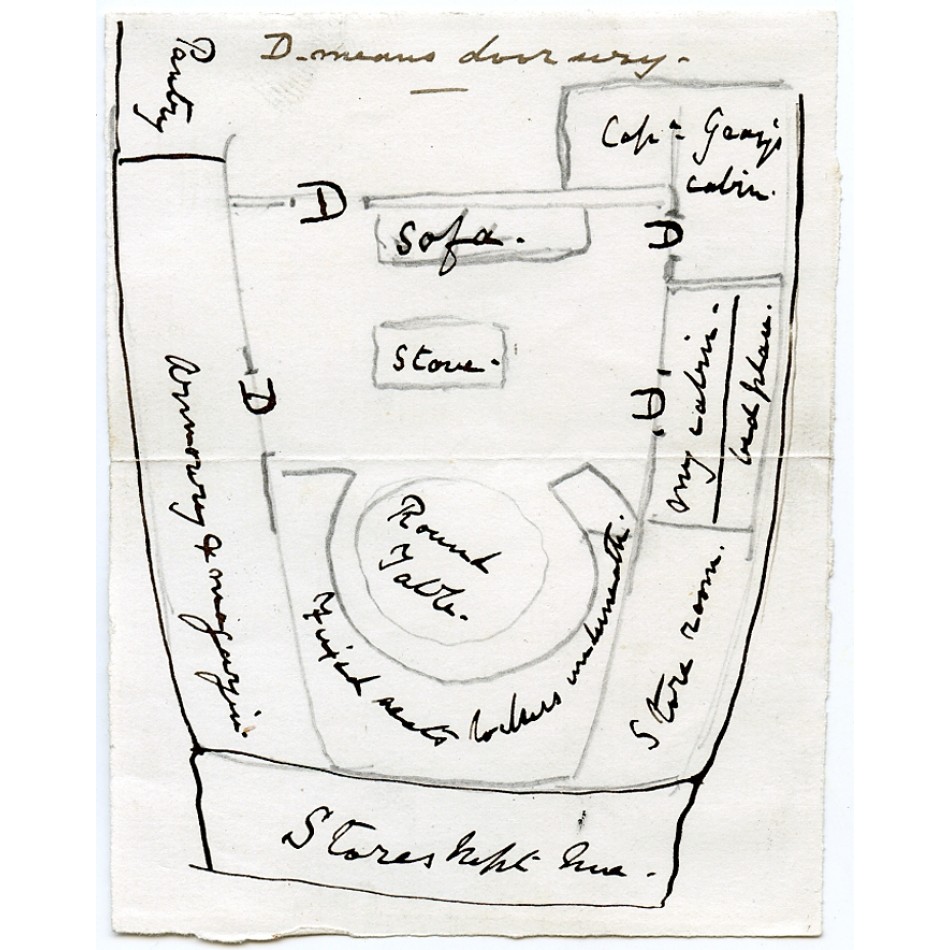 D. means doorway.
Pantry
Capn Gray's
cabin.
D
Sofa.
D
Stove.
D
D
my cabin.
bed place.
Armoury & magazin.
Round
Table.
Fixed seats lockers underneath.
Store room.
Stores kept here.